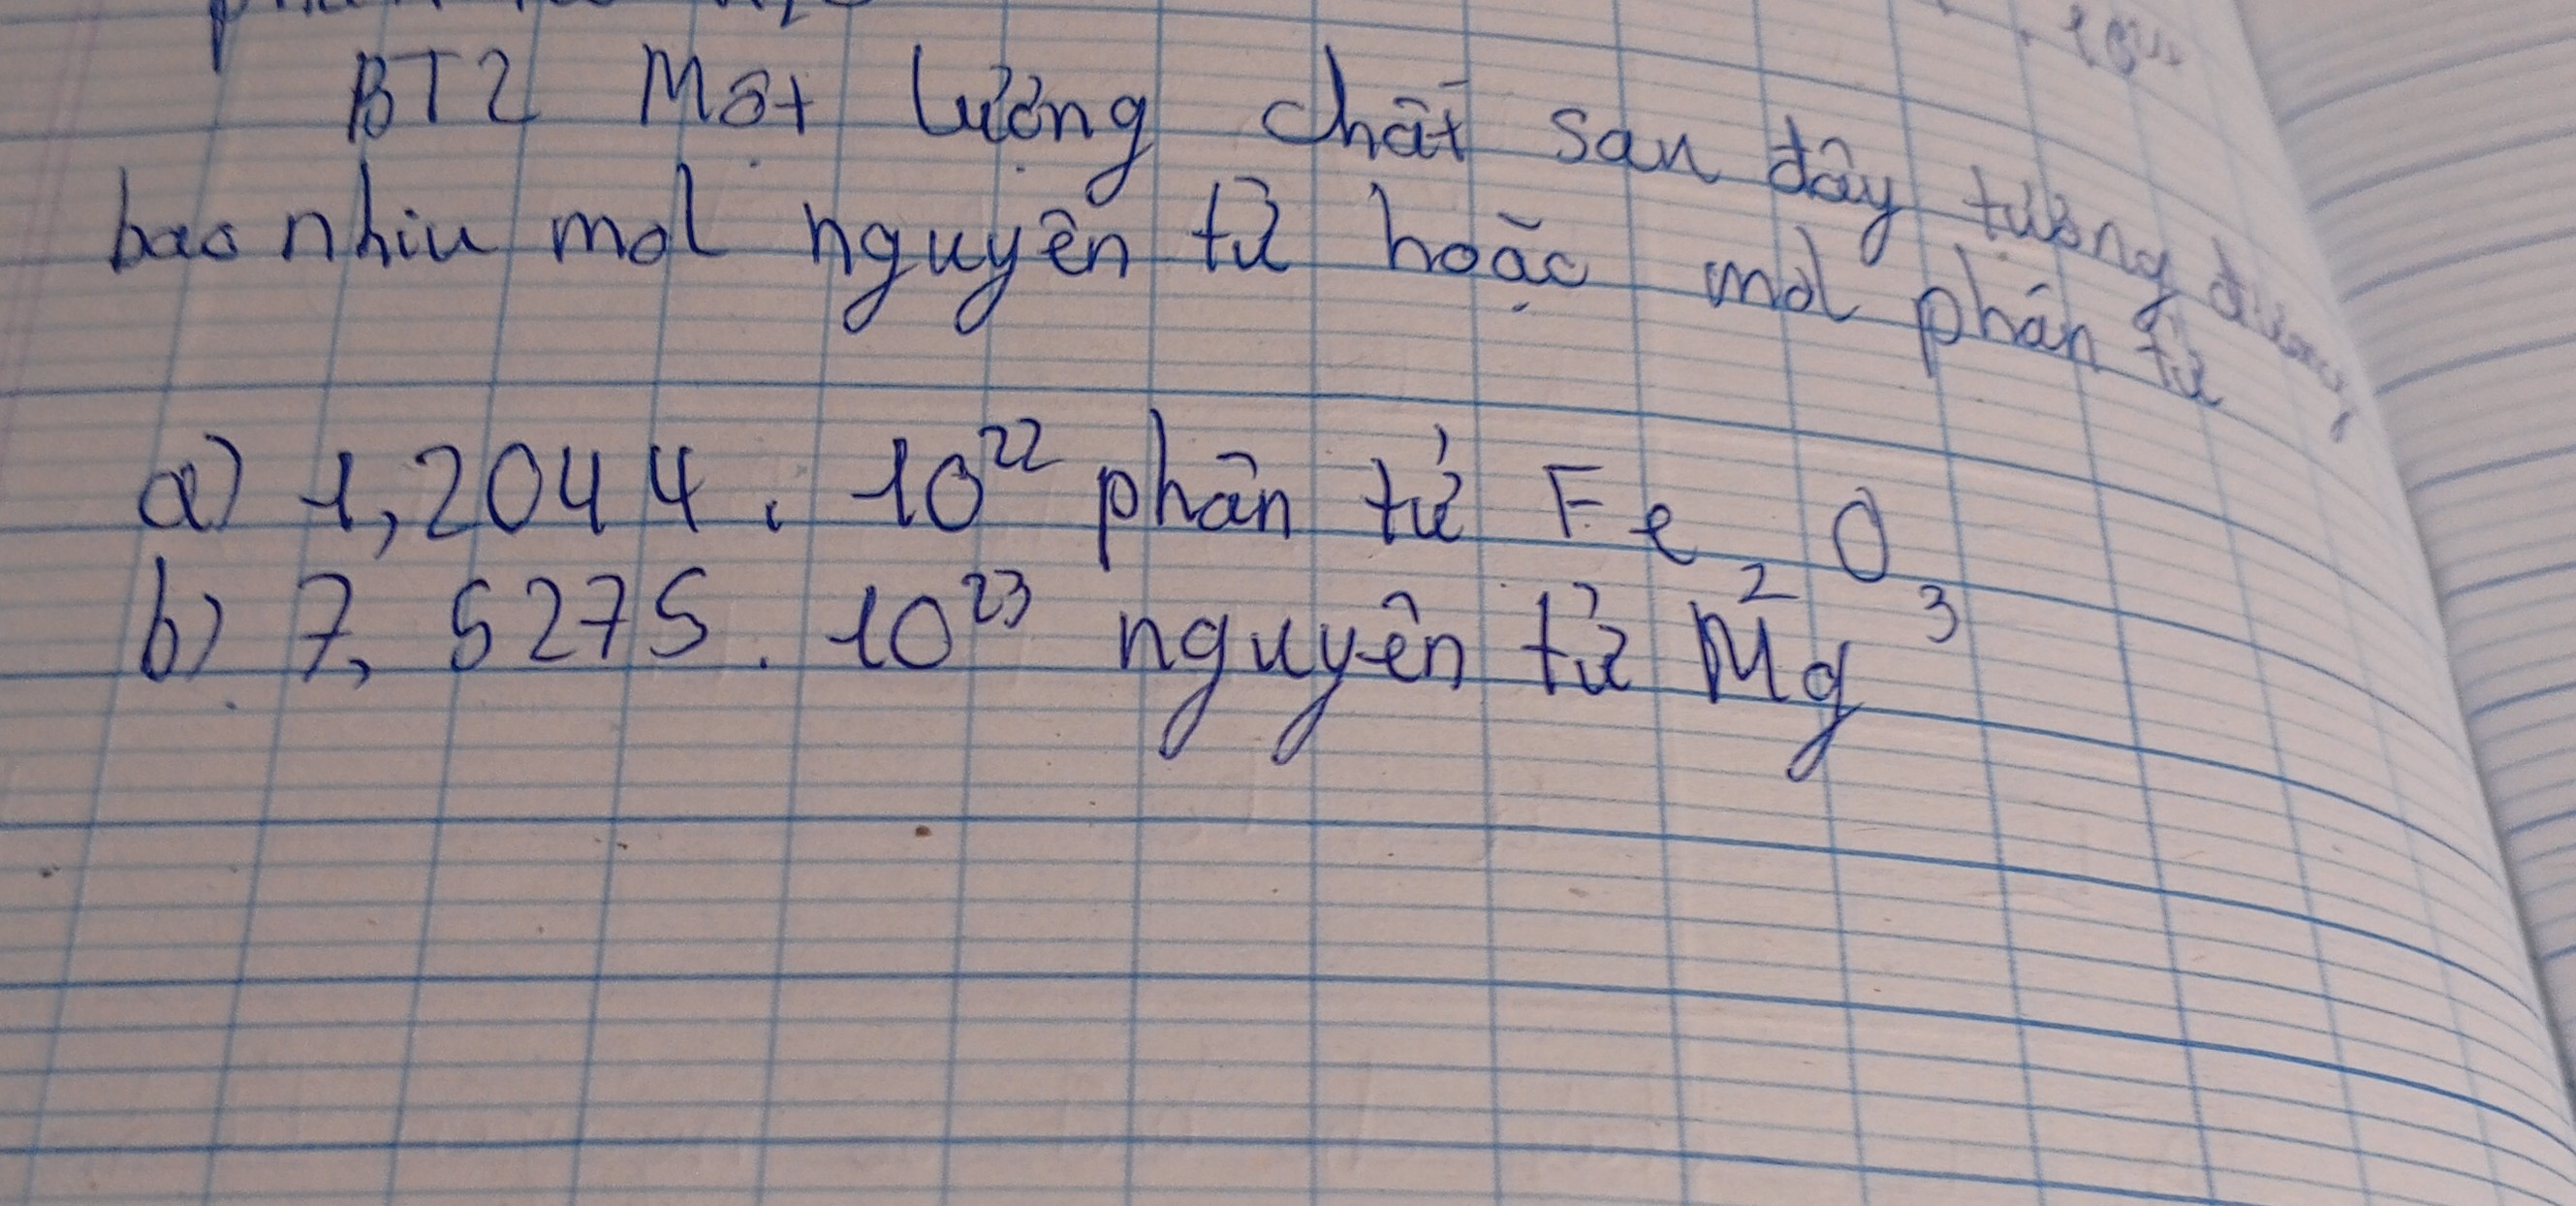 BT2 Một lượng chất sau đây tương đương
bao nhiu mol nguyên tử hoặc mol phân tử
a) 1,2044 . 10²² phân tử Fe₂O₃
b) 7,5275 . 10²³ nguyên tử Mg